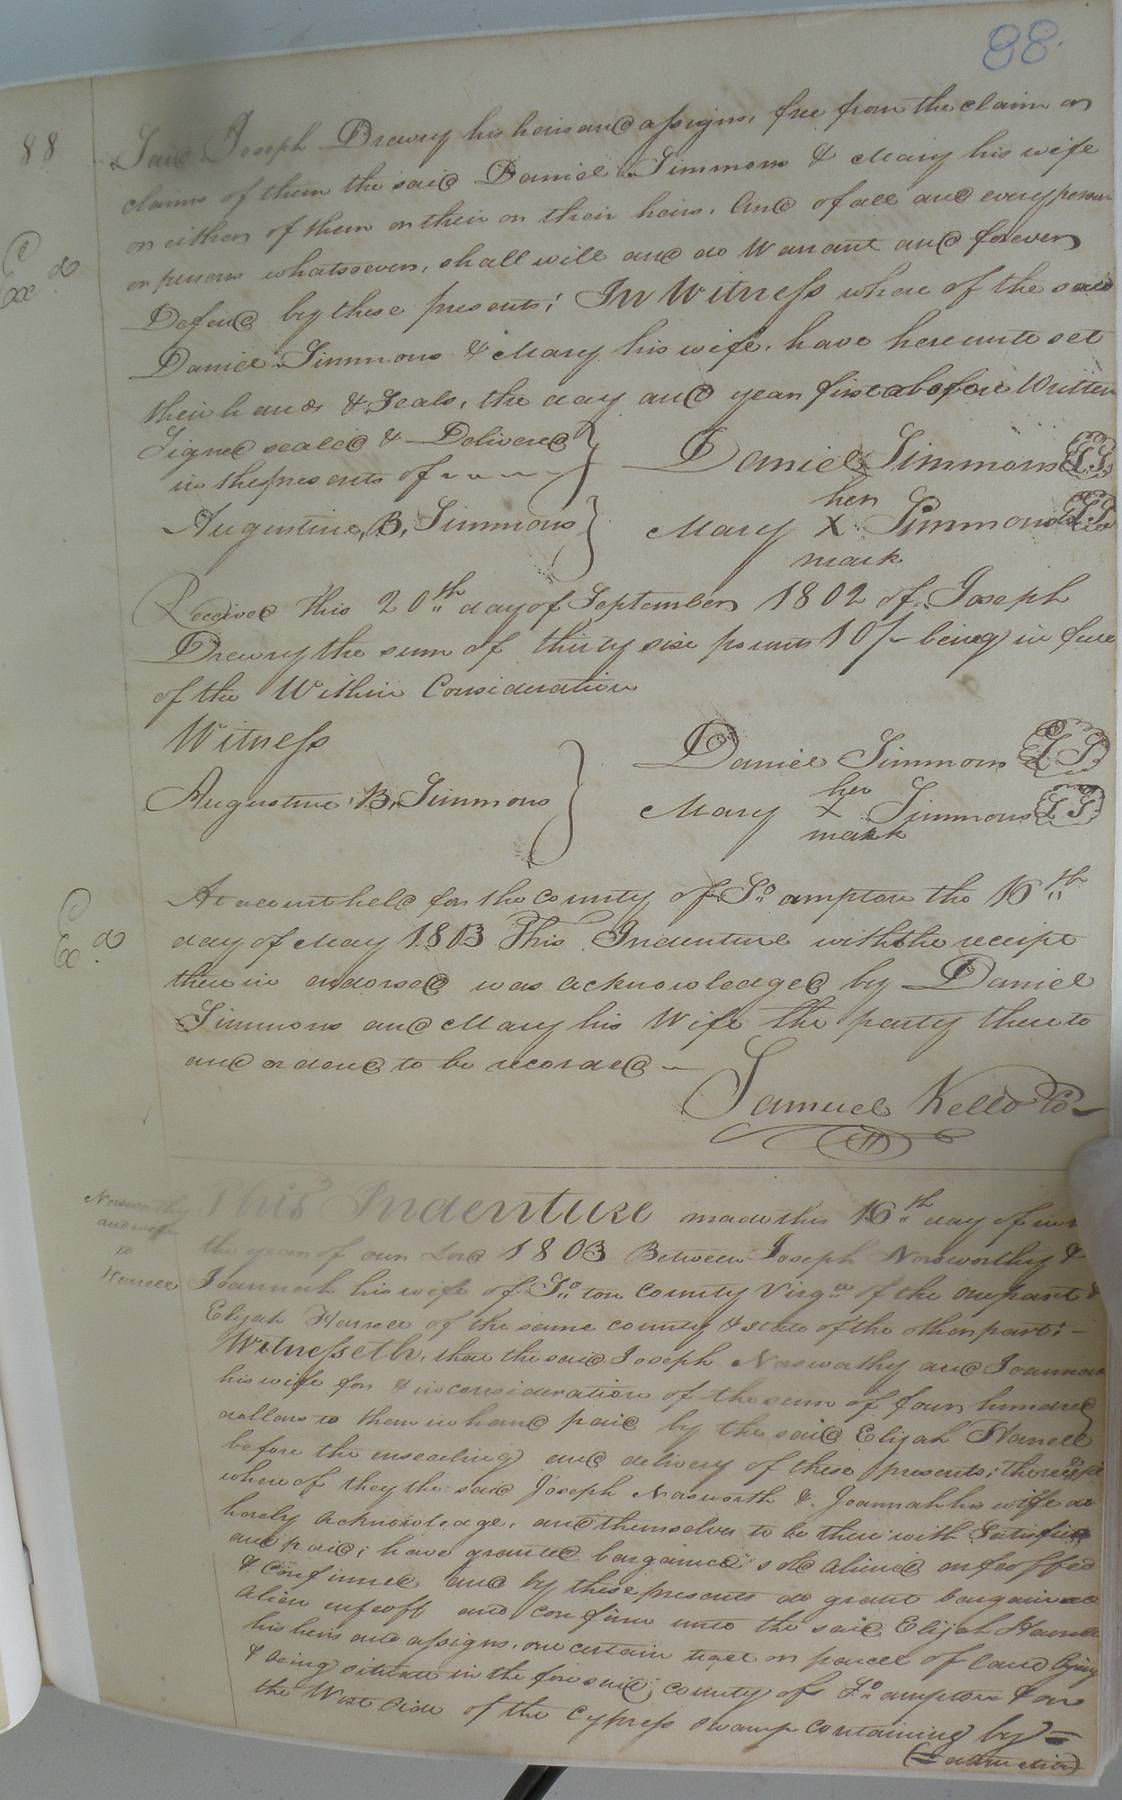 88.
88
Said Joseph Drewry his heirs and assigns, free from the claim or
claims of them the said Daniel Simmons & Mary his wife
or either of them or their or their heirs. And of all and every person
or persons whatsoever, shall will and do Warrant and forever
Exd
Defend by these presents; In Witness where of the said
Daniel Simmons & Mary his wife, have hereunto set
their hands & Seals, the day and year first above Written
Signed sealed & Delivered
in the presents of
Daniel Simmons LS
Augustine, B, Simmons
her
Mary X Simmons LS
mark
Received this 20th day of September 1802 of Joseph
Drewry the sum of thirty six pounds 10/- being in full
of the Within Consideration
Witness
Daniel Simmons LS
Augustine, B, Simmons
her
Mary X Simmons LS
mark
At a court held for the county of So. ampton the 16th
Exd
day of May 1803 This Indenture with the receipt
there in endorsed was acknowledged by Daniel
Simmons and Mary his Wife the party there to
and ordered to be recorded —
Samuel Kello
Norsworthy
and wife
to
Harrell
This Indenture made this 16th day of
the year of our Lord 1803 Between Joseph Norsworthy &
Joannah his wife of So. ton county Virga. of the one part &
Elijah Harrell of the same county & state of the other part; —
Witnesseth, that the said Joseph Norsworthy and Joannah
his wife for & in consideration of the sum of four hundred
dollars to them in hand paid by the said Elijah Harrell
before the ensealing and delivery of these presents; the receipt
where of they the said Joseph Norsworth & Joannah his wife do
hereby acknowledge, and themselves to be there with Satisfied
and paid; have granted bargained sold aliened enfeoffed
& confirmed and by these presents do grant bargain
alien enfeoff and confirm unto the said Elijah Harrell
his heirs and assigns, one certain or parcel of land lying
& being situate in the fore said county of So. ampton & on
the West side of the Cypress swamp containing by =